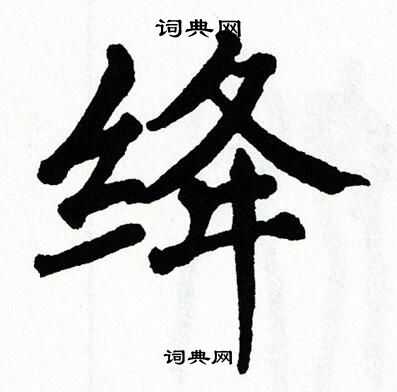 词典网
绛
词典网